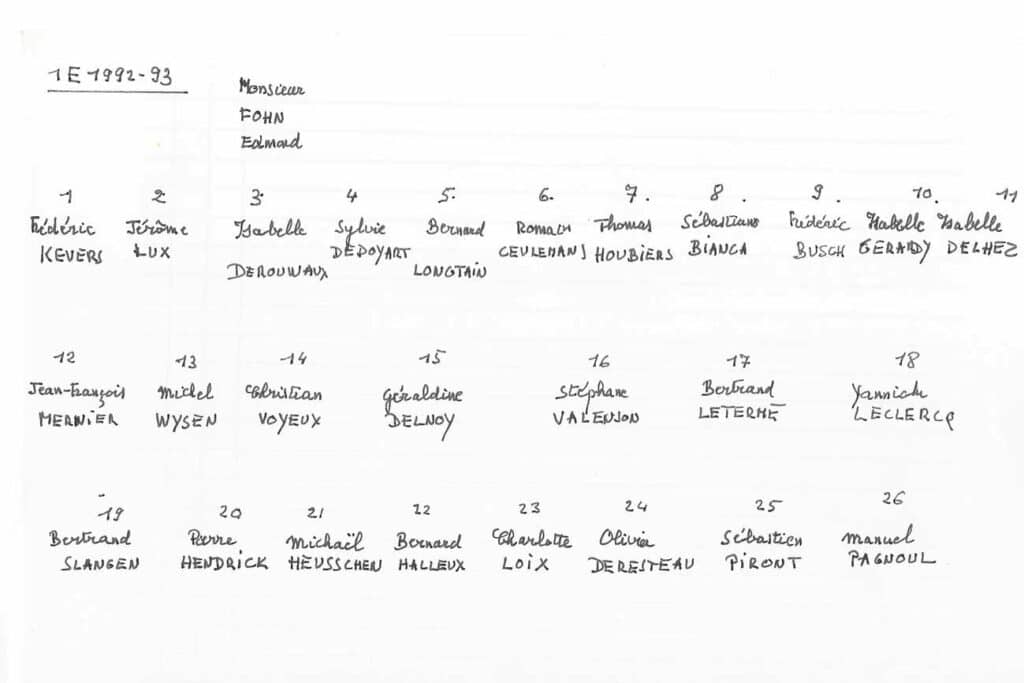 1E 1992-93
Monsieur
FOHN
Edmond
1 2 3. 4 5. 6. 7. 8. 9. 10. 11
Frédéric Jérôme Isabelle Sylvie Bernard Romain Thomas Sébastiano Frédéric Isabelle Isabelle
KEVERS LUX DEDOYART CEULEMANS HOUBIERS BIANCA BUSCH GERARDY DELHEZ
DEROUWAUX LONGTAIN
12 13 14 15 16 17 18
Jean-François Michel Christian Géraldine Stéphane Bertrand Yannick
MERNIER WYSEN VOYEUX DELNOY LETERME LECLERCQ
19 20 21 22 23 24 25 26
Bertrand Pierre Michaël Bernard Charlotte Olivier Sébastien Manuel
SLANGEN HENDRICK HEUSSCHEN HALLEUX LOIX DERESTEAU PIRONT PAGNOUL